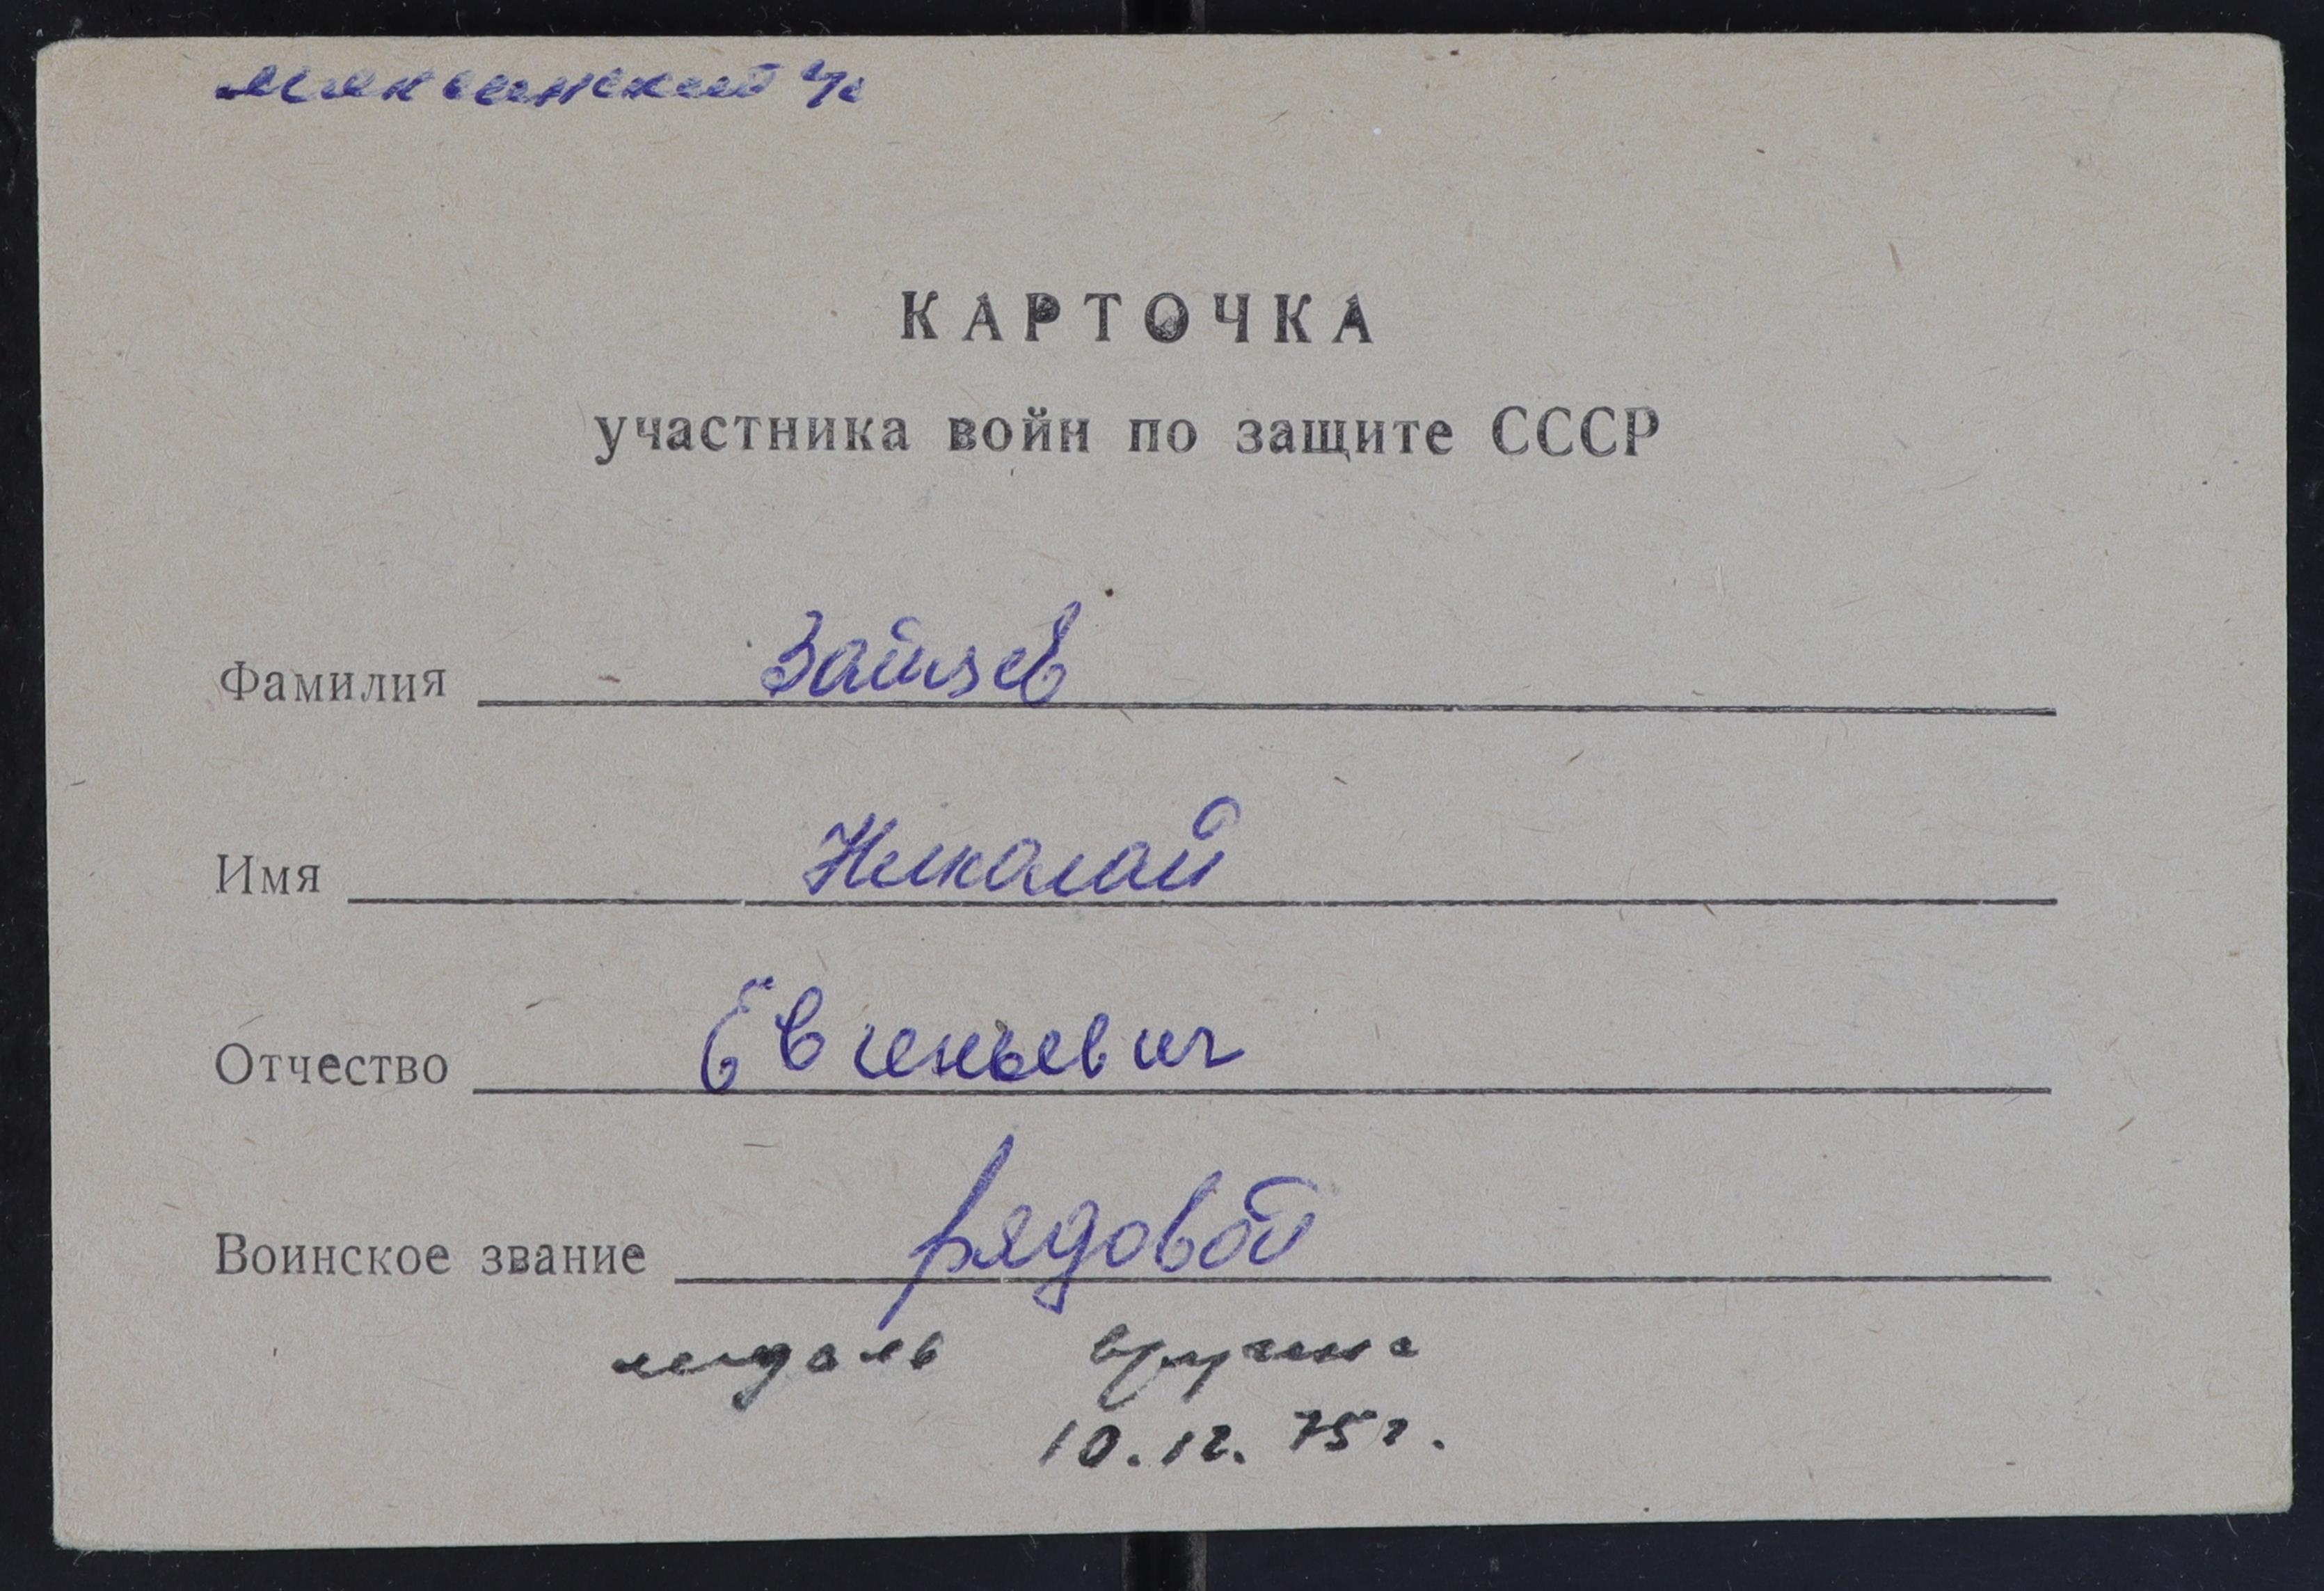 КАРТОЧКА
участника войн по защите СССР
Фамилия Зайцев
Имя Николай
Отчество Евгеньевич
Воинское звание рядовой
медаль вручена
10.12.75 г.